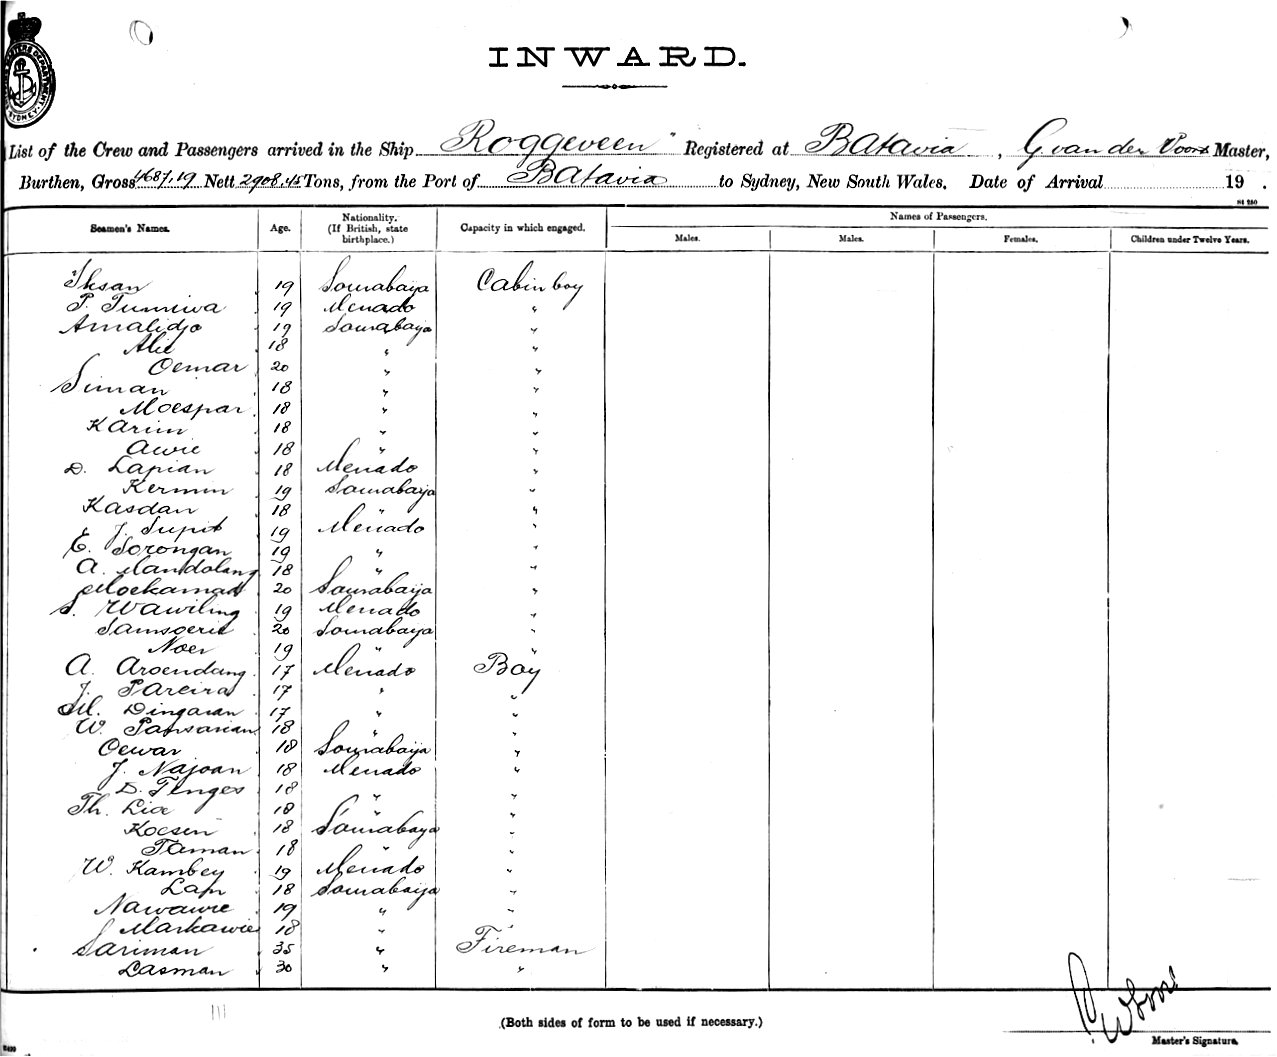 INWARD.
List of the Crew and Passengers arrived in the Ship Roggeveen" Registered at Batavia, G van der Voorn Master,
Burthen, Gross 4687,19 Nett 2908.45 Tons, from the Port of Batavia to Sydney, New South Wales. Date of Arrival 19 .
Seamen's Names. Age. Nationality. (If British, state birthplace.) Capacity in which engaged. Names of Passengers.
Males. Males. Females. Children under Twelve Years.
Iksan 19 Sourabaya Cabin boy
P. Tumiwa 19 Menado "
Amalidjo 19 Sourabaya "
Alie 18 " "
Oemar 20 " "
Siman 18 " "
Moespar 18 " "
Karim 18 " "
Awie 18 " "
D. Lapian 18 Menado "
Kermin 19 Sourabaija "
Kasdan 18 " "
J. Supit 19 Menado "
E. Sorongan 19 " "
A. Mandolang 18 " "
Moekamad 20 Sourabaija "
S. Wawiling 19 Menado "
Samsoerie 20 Sourabaya "
Noer 19 " "
A. Aroendang 17 Menado Boy
J. Pareira 17 " "
M. Dingaran 17 " "
W. Pansarian 18 " "
Oewar 18 Sourabaija "
J. Najoan 18 Menado "
D. Tenges 18 " "
Th. Lia 18 " "
Koesen 18 Sourabaya "
Taman 18 " "
W. Kambey 19 Menado "
Lan 18 Sourabaija "
Nawawie 19 " "
Markawie 18 " "
Sariman 35 " Fireman
Lasman 30 " "
(Both sides of form to be used if necessary.)
Master's Signature.